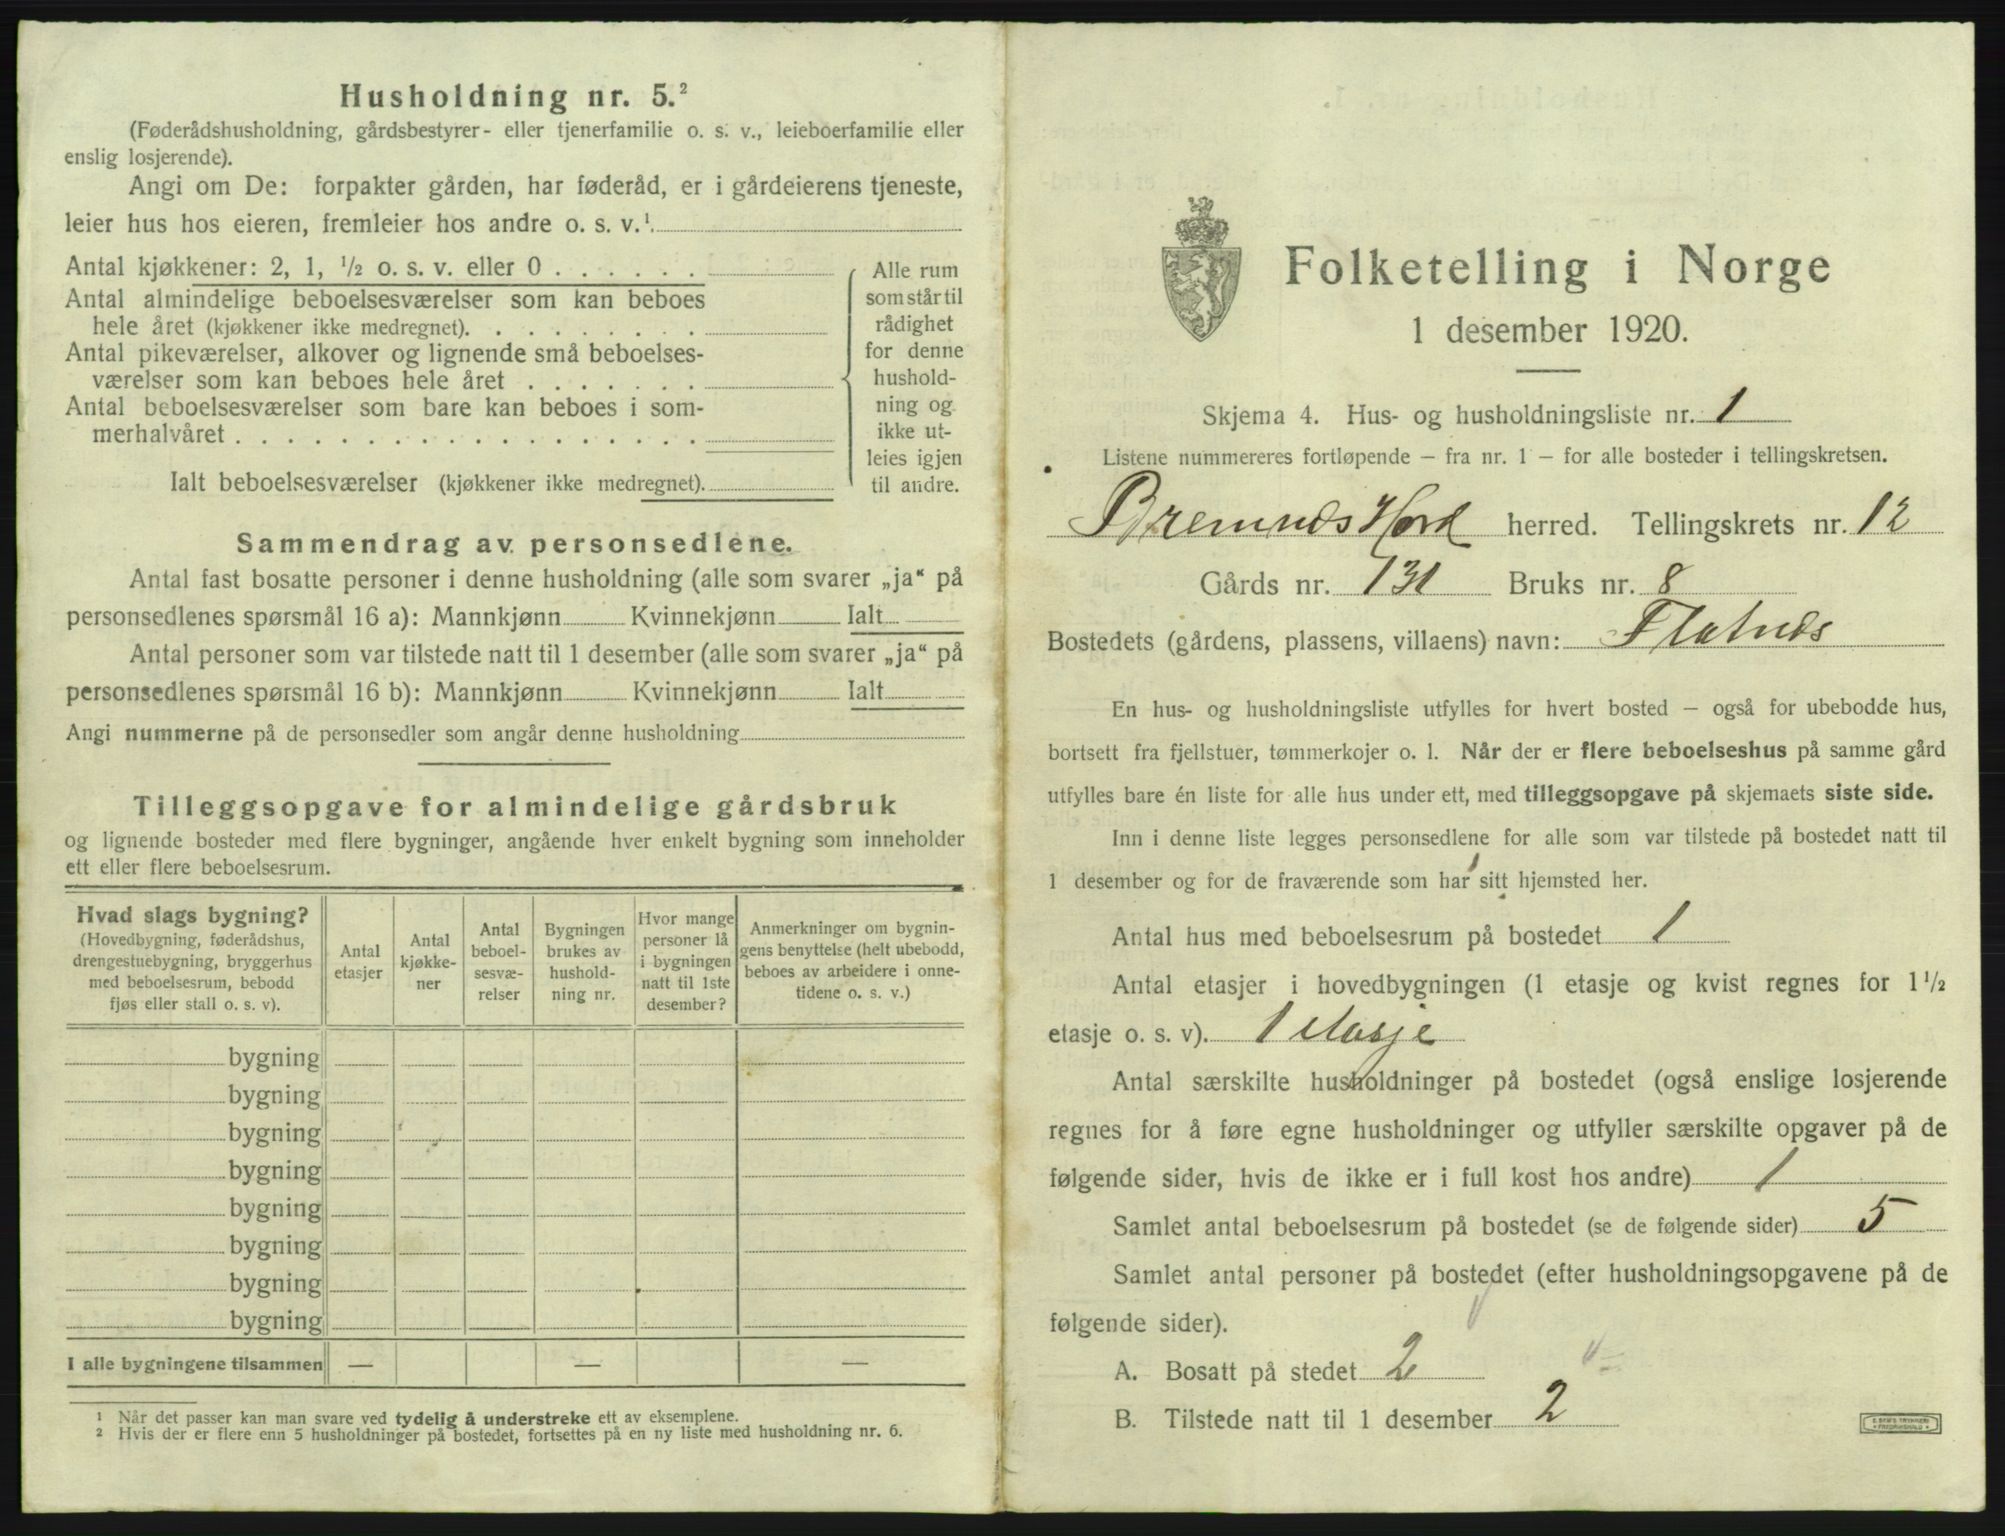 Husholdning nr. 5.²
(Føderådshusholdning, gårdsbestyrer- eller tjenerfamilie o. s. v., leieboerfamilie eller
enslig losjerende).
Angi om De: forpakter gården, har føderåd, er i gårdeierens tjeneste,
leier hus hos eieren, fremleier hos andre o. s. v.¹
Antal kjøkkener: 2, 1, ½ o. s. v. eller 0 . . . . . .
Antal almindelige beboelsesværelser som kan beboes
hele året (kjøkkener ikke medregnet). . . . . . . . .
Antal pikeværelser, alkover og lignende små beboelses-
værelser som kan beboes hele året . . . . . . .
Antal beboelsesværelser som bare kan beboes i som-
merhalvåret . . . . . . . . . . . . . . . . . .
Ialt beboelsesværelser (kjøkkener ikke medregnet).
Alle rum
som står til
rådighet
for denne
hushold-
ning og
ikke ut-
leies igjen
til andre.
Sammendrag av personsedlene.
Antal fast bosatte personer i denne husholdning (alle som svarer „ja“ på
personsedlenes spørsmål 16 a): Mannkjønn Kvinnekjønn Ialt
Antal personer som var tilstede natt til 1 desember (alle som svarer „ja“ på
personsedlenes spørsmål 16 b): Mannkjønn Kvinnekjønn Ialt
Angi nummerne på de personsedler som angår denne husholdning
Tilleggsopgave for almindelige gårdsbruk
og lignende bosteder med flere bygninger, angående hver enkelt bygning som inneholder
ett eller flere beboelsesrum.
Hvad slags bygning?
(Hovedbygning, føderådshus,
drengestuebygning, bryggerhus
med beboelsesrum, bebodd
fjøs eller stall o. s. v).
Antal
etasjer
Antal
kjøkke-
ner
Antal
beboel-
sesvæ-
relser
Bygningen
brukes av
hushold-
ning nr.
Hvor mange
personer lå
i bygningen
natt til 1ste
desember?
Anmerkninger om bygnin-
gens benyttelse (helt ubebodd,
beboes av arbeidere i onne-
tidene o. s. v.)
bygning
bygning
bygning
bygning
bygning
bygning
bygning
bygning
I alle bygningene tilsammen — — —
¹ Når det passer kan man svare ved tydelig å understreke ett av eksemplene.
² Hvis der er flere enn 5 husholdninger på bostedet, fortsettes på en ny liste med husholdning nr. 6.
Folketelling i Norge
1 desember 1920.
Skjema 4. Hus- og husholdningsliste nr. 1
Listene nummereres fortløpende – fra nr. 1 – for alle bosteder i tellingskretsen.
Bremnes Hord herred. Tellingskrets nr. 12
Gårds nr. 131 Bruks nr. 8
Bostedets (gårdens, plassens, villaens) navn: Flatnes
En hus- og husholdningsliste utfylles for hvert bosted – også for ubebodde hus,
bortsett fra fjellstuer, tømmerkojer o. l. Når der er flere beboelseshus på samme gård
utfylles bare én liste for alle hus under ett, med tilleggsopgave på skjemaets siste side.
Inn i denne liste legges personsedlene for alle som var tilstede på bostedet natt til
1 desember og for de fraværende som har sitt hjemsted her.
Antal hus med beboelsesrum på bostedet 1
Antal etasjer i hovedbygningen (1 etasje og kvist regnes for 1½
etasje o. s. v). 1 etasje
Antal særskilte husholdninger på bostedet (også enslige losjerende
regnes for å føre egne husholdninger og utfyller særskilte opgaver på de
følgende sider, hvis de ikke er i full kost hos andre) 1
Samlet antal beboelsesrum på bostedet (se de følgende sider) 5
Samlet antal personer på bostedet (efter husholdningsopgavene på de
følgende sider).
A. Bosatt på stedet 2
B. Tilstede natt til 1 desember 2